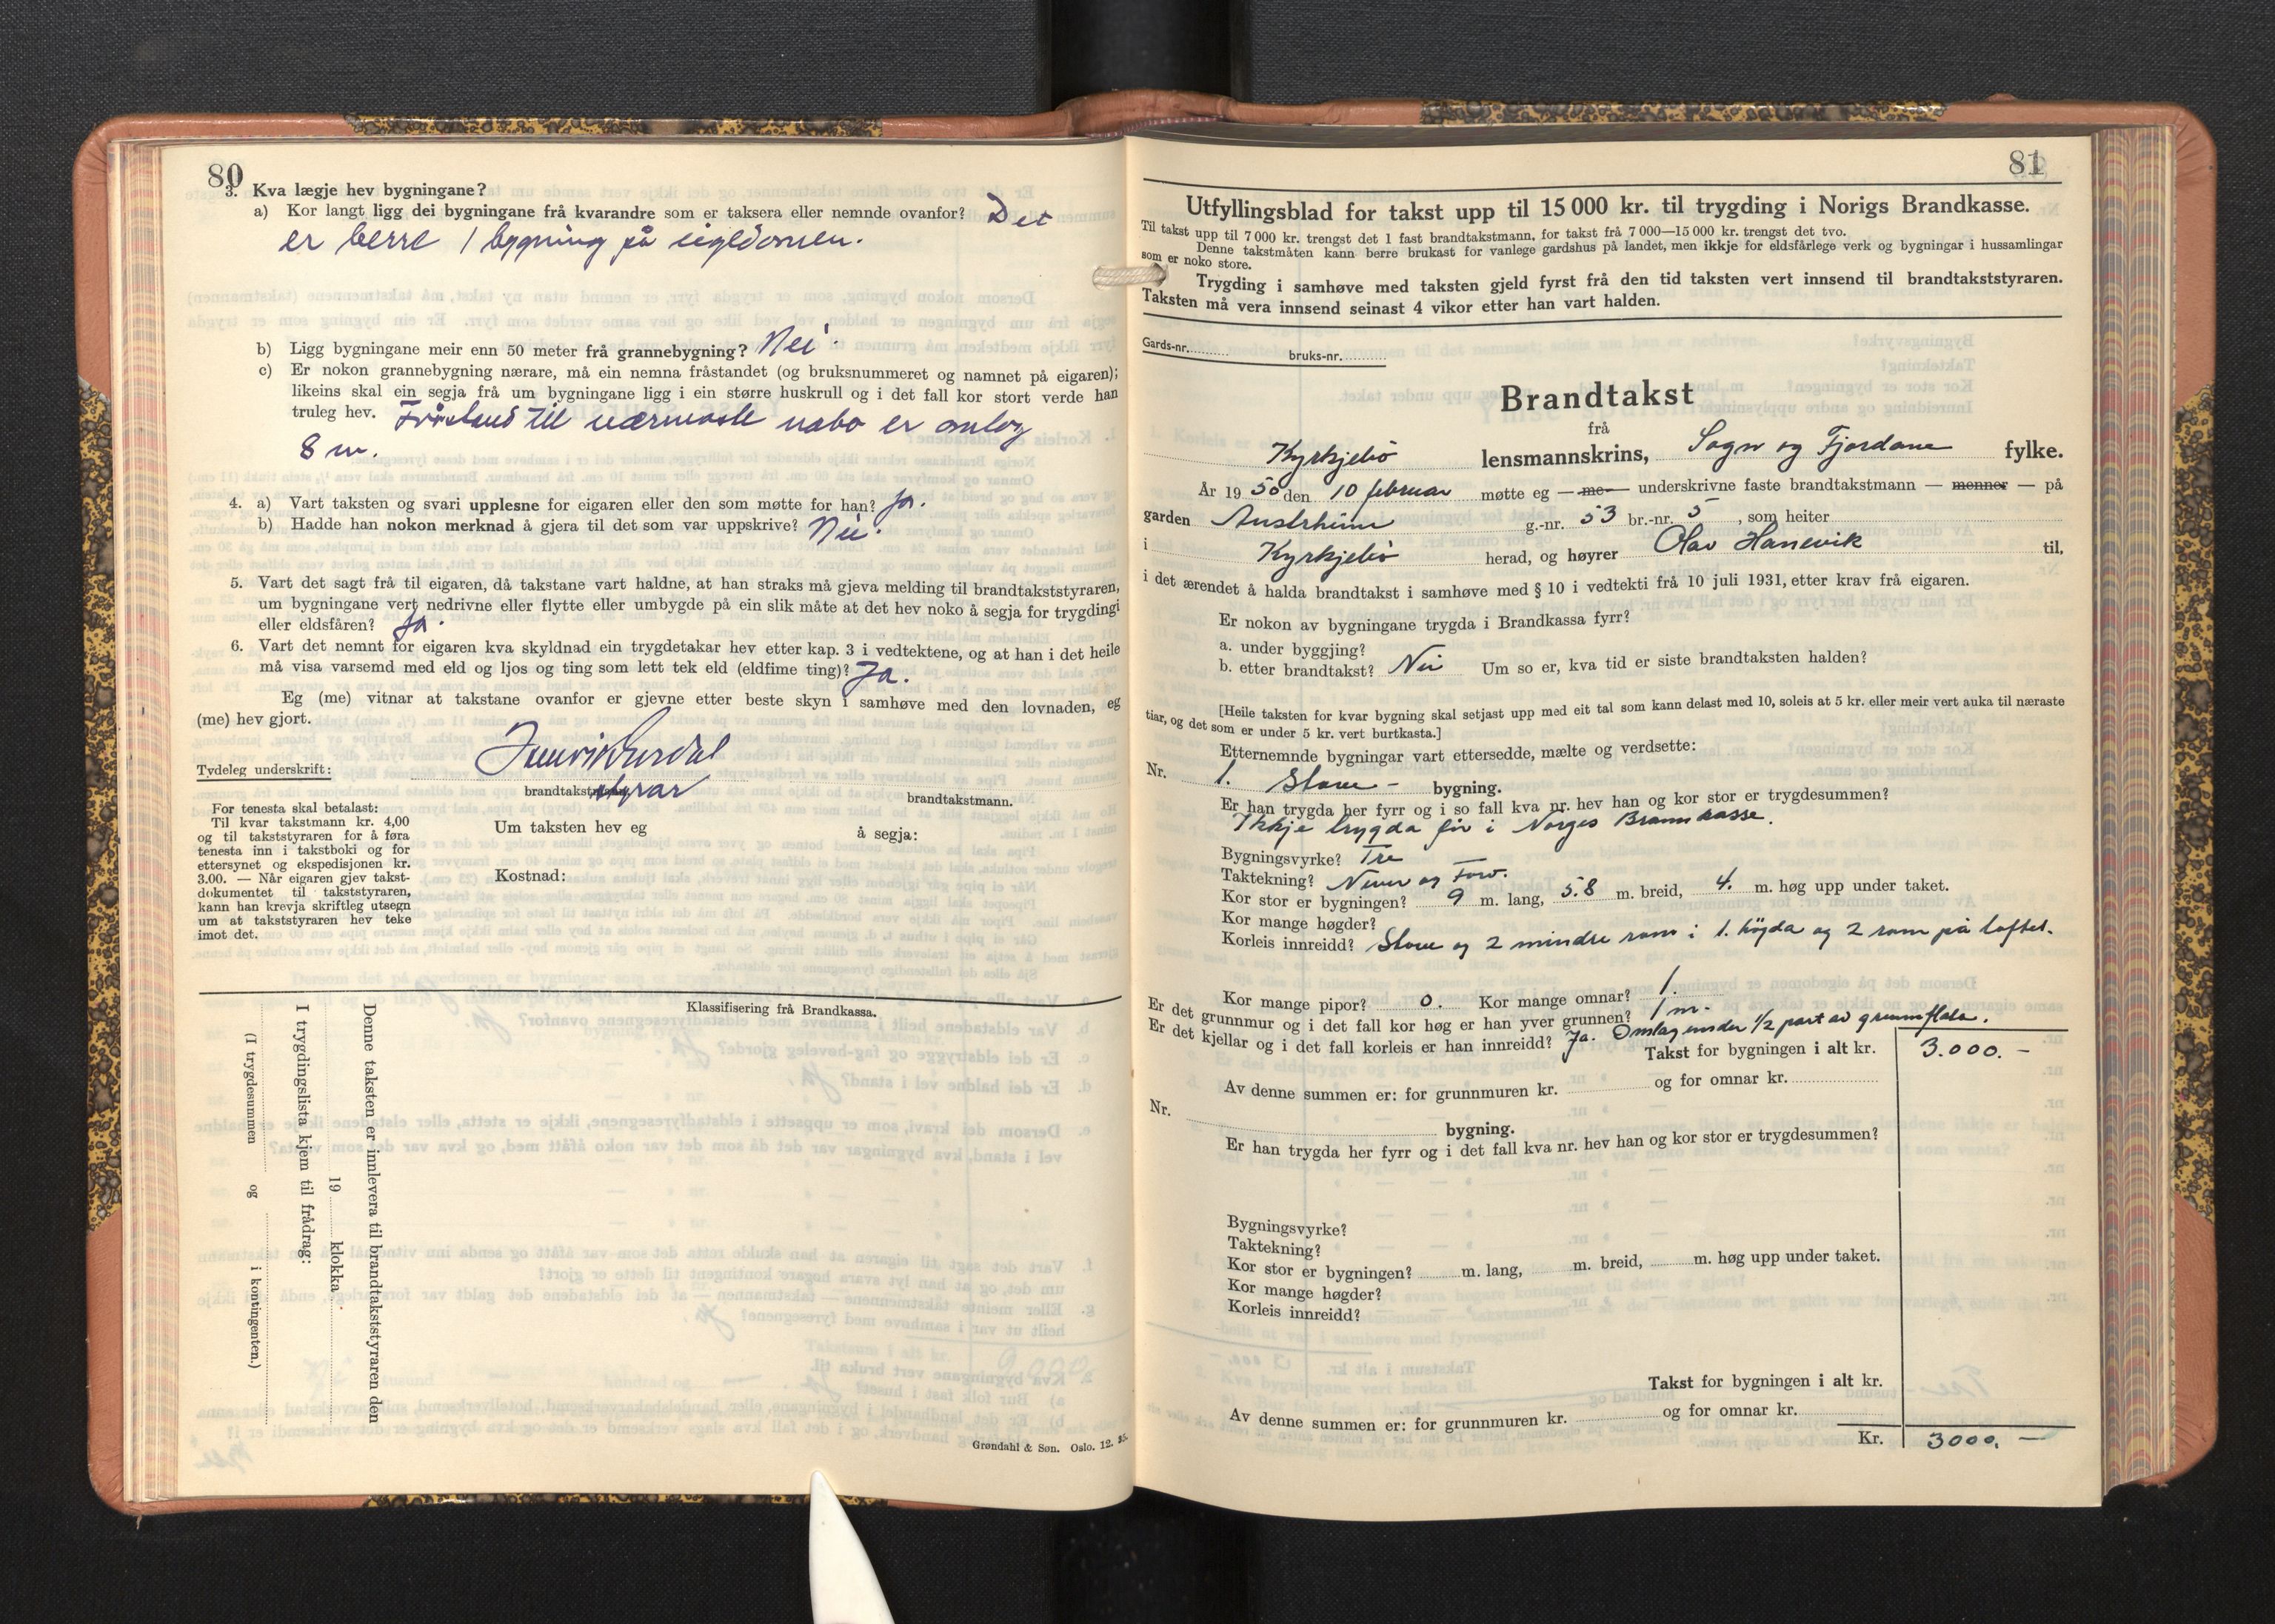 80
3. Kva lægje hev bygningane?
a) Kor langt ligg dei bygningane frå kvarandre som er taksera eller nemnde ovanfor? Det
er berre 1 bygning på eigedomen.
b) Ligg bygningane meir enn 50 meter frå grannebygning? Nei.
c) Er nokon grannebygning nærare, må ein nemna fråstandet (og bruksnummeret og namnet på eigaren);
likeins skal ein segja frå um bygningane ligg i ein større huskrull og i det fall kor stort verde han
truleg hev. Fråstand til nærmaste nabo er omlag
8 m.
4. a) Vart taksten og svari upplesne for eigaren eller den som møtte for han? Ja.
b) Hadde han nokon merknad å gjera til det som var uppskrive? Nei.
5. Vart det sagt frå til eigaren, då takstane vart haldne, at han straks må gjeva melding til brandtakststyraren,
um bygningane vert nedrivne eller flytte eller umbygde på ein slik måte at det hev noko å segja for trygdingi
eller eldsfåren? Ja.
6. Vart det nemnt for eigaren kva skyldnad ein trygdetakar hev etter kap. 3 i vedtektene, og at han i det heile
må visa varsemd med eld og ljos og ting som lett tek eld (eldfime ting)? Ja.
Eg (me) vitnar at takstane ovanfor er gjevne etter beste skyn i samhøve med den lovnaden, eg
(me) hev gjort.
Tydeleg underskrift:
brandtakstmann. styrar
brandtakstmann.
For tenesta skal betalast:
Til kvar takstmann kr. 4,00
og til takststyraren for å føra
tenesta inn i takstboki og for
ettersynet og ekspedisjonen kr.
3.00. — Når eigaren gjev takst-
dokumentet til takststyraren,
kann han krevja skriftleg utsegn
um at takststyraren hev teke
imot det.
Um taksten hev eg
å segja:
Kostnad:
Klassifisering frå Brandkassa.
Denne taksten er innlevera til brandtakststyraren den
19 klokka
I trygdingslista kjem til frådrag:
(I trygdesummen og i kontingenten.)
Grøndahl & Søn. Oslo. 12. 35.
81
Utfyllingsblad for takst upp til 15 000 kr. til trygding i Norigs Brandkasse.
Til takst upp til 7 000 kr. trengst det 1 fast brandtakstmann, for takst frå 7 000—15 000 kr. trengst det tvo.
Denne takstmåten kann berre brukast for vanlege gardshus på landet, men ikkje for eldsfårlege verk og bygningar i hussamlingar
som er noko store.
Trygding i samhøve med taksten gjeld fyrst frå den tid taksten vert innsend til brandtakststyraren.
Taksten må vera innsend seinast 4 vikor etter han vart halden.
Gards-nr. bruks-nr.
Brandtakst
frå
Kyrkjebø lensmannskrins, Sogn og Fjordane fylke.
År 1950 den 10 februar møtte eg — me — underskrivne faste brandtakstmann — menner — på
garden Austrheim g.-nr. 53 br.-nr. 5, som heiter
i Kyrkjebø herad, og høyrer Olav Hanevik til,
i det ærendet å halda brandtakst i samhøve med § 10 i vedtekti frå 10 juli 1931, etter krav frå eigaren.
Er nokon av bygningane trygda i Brandkassa fyrr?
a. under byggjing?
b. etter brandtakst? Nei Um so er, kva tid er siste brandtaksten halden?
[Heile taksten for kvar bygning skal setjast upp med eit tal som kann delast med 10, soleis at 5 kr. eller meir vert auka til næraste
tiar, og det som er under 5 kr. vert burtkasta.]
Etternemnde bygningar vart ettersedde, mælte og verdsette:
Nr. 1. Stove - bygning.
Er han trygda her fyrr og i so fall kva nr. hev han og kor stor er trygdesummen?
Ikkje trygda før i Norges Brannkasse.
Bygningsvyrke? Tre
Taktekning? Never og Torv.
Kor stor er bygningen? 9 m. lang, 5.8 m. breid, 4. m. høg upp under taket.
Kor mange høgder?
Korleis innreidd? Stove og 2 mindre rom i 1. högda og 2 rom på loftet.
Kor mange pipor? 0. Kor mange omnar? 1.
Er det grunnmur og i det fall kor høg er han yver grunnen? 1 m.
Er det kjellar og i det fall korleis er han innreidd? Ja. Omlag under 1/2 part av grunnflata.
Takst for bygningen i alt kr. 3.000. -
Av denne summen er: for grunnmuren kr. og for omnar kr.
Nr. bygning.
Er han trygda her fyrr og i det fall kva nr. hev han og kor stor er trygdesummen?
Bygningsvyrke?
Taktekning?
Kor stor er bygningen? m. lang, m. breid, m. høg upp under taket.
Kor mange høgder?
Korleis innreidd?
Takst for bygningen i alt kr.
Av denne summen er: for grunnmuren kr. og for omnar kr.
Kr. 3000. -